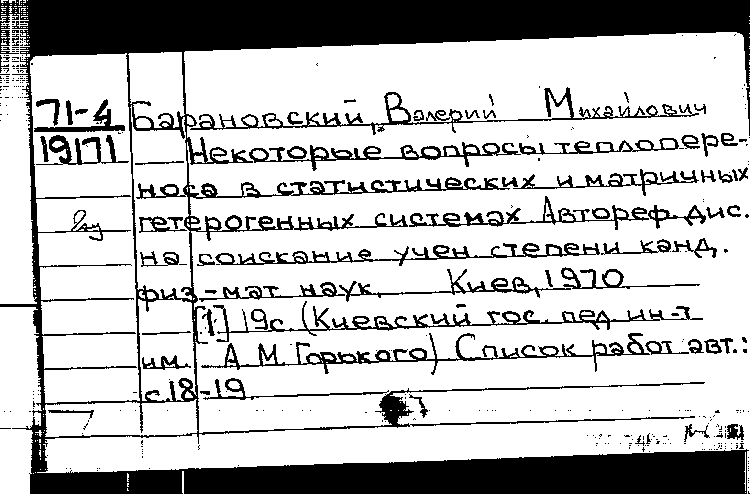 71-4
19171
Барановский, Валерий Михайлович
Некоторые вопросы теплопере-
носа в статистических и матричных
гетерогенных системах Автореф. дис.
на соискание учен. степени канд.
физ.-мат наук. Киев, 1970
[1] 19с. (Киевский гос. пед. ин-т
им. А. М. Горького) Список работ авт.:
с.18-19.